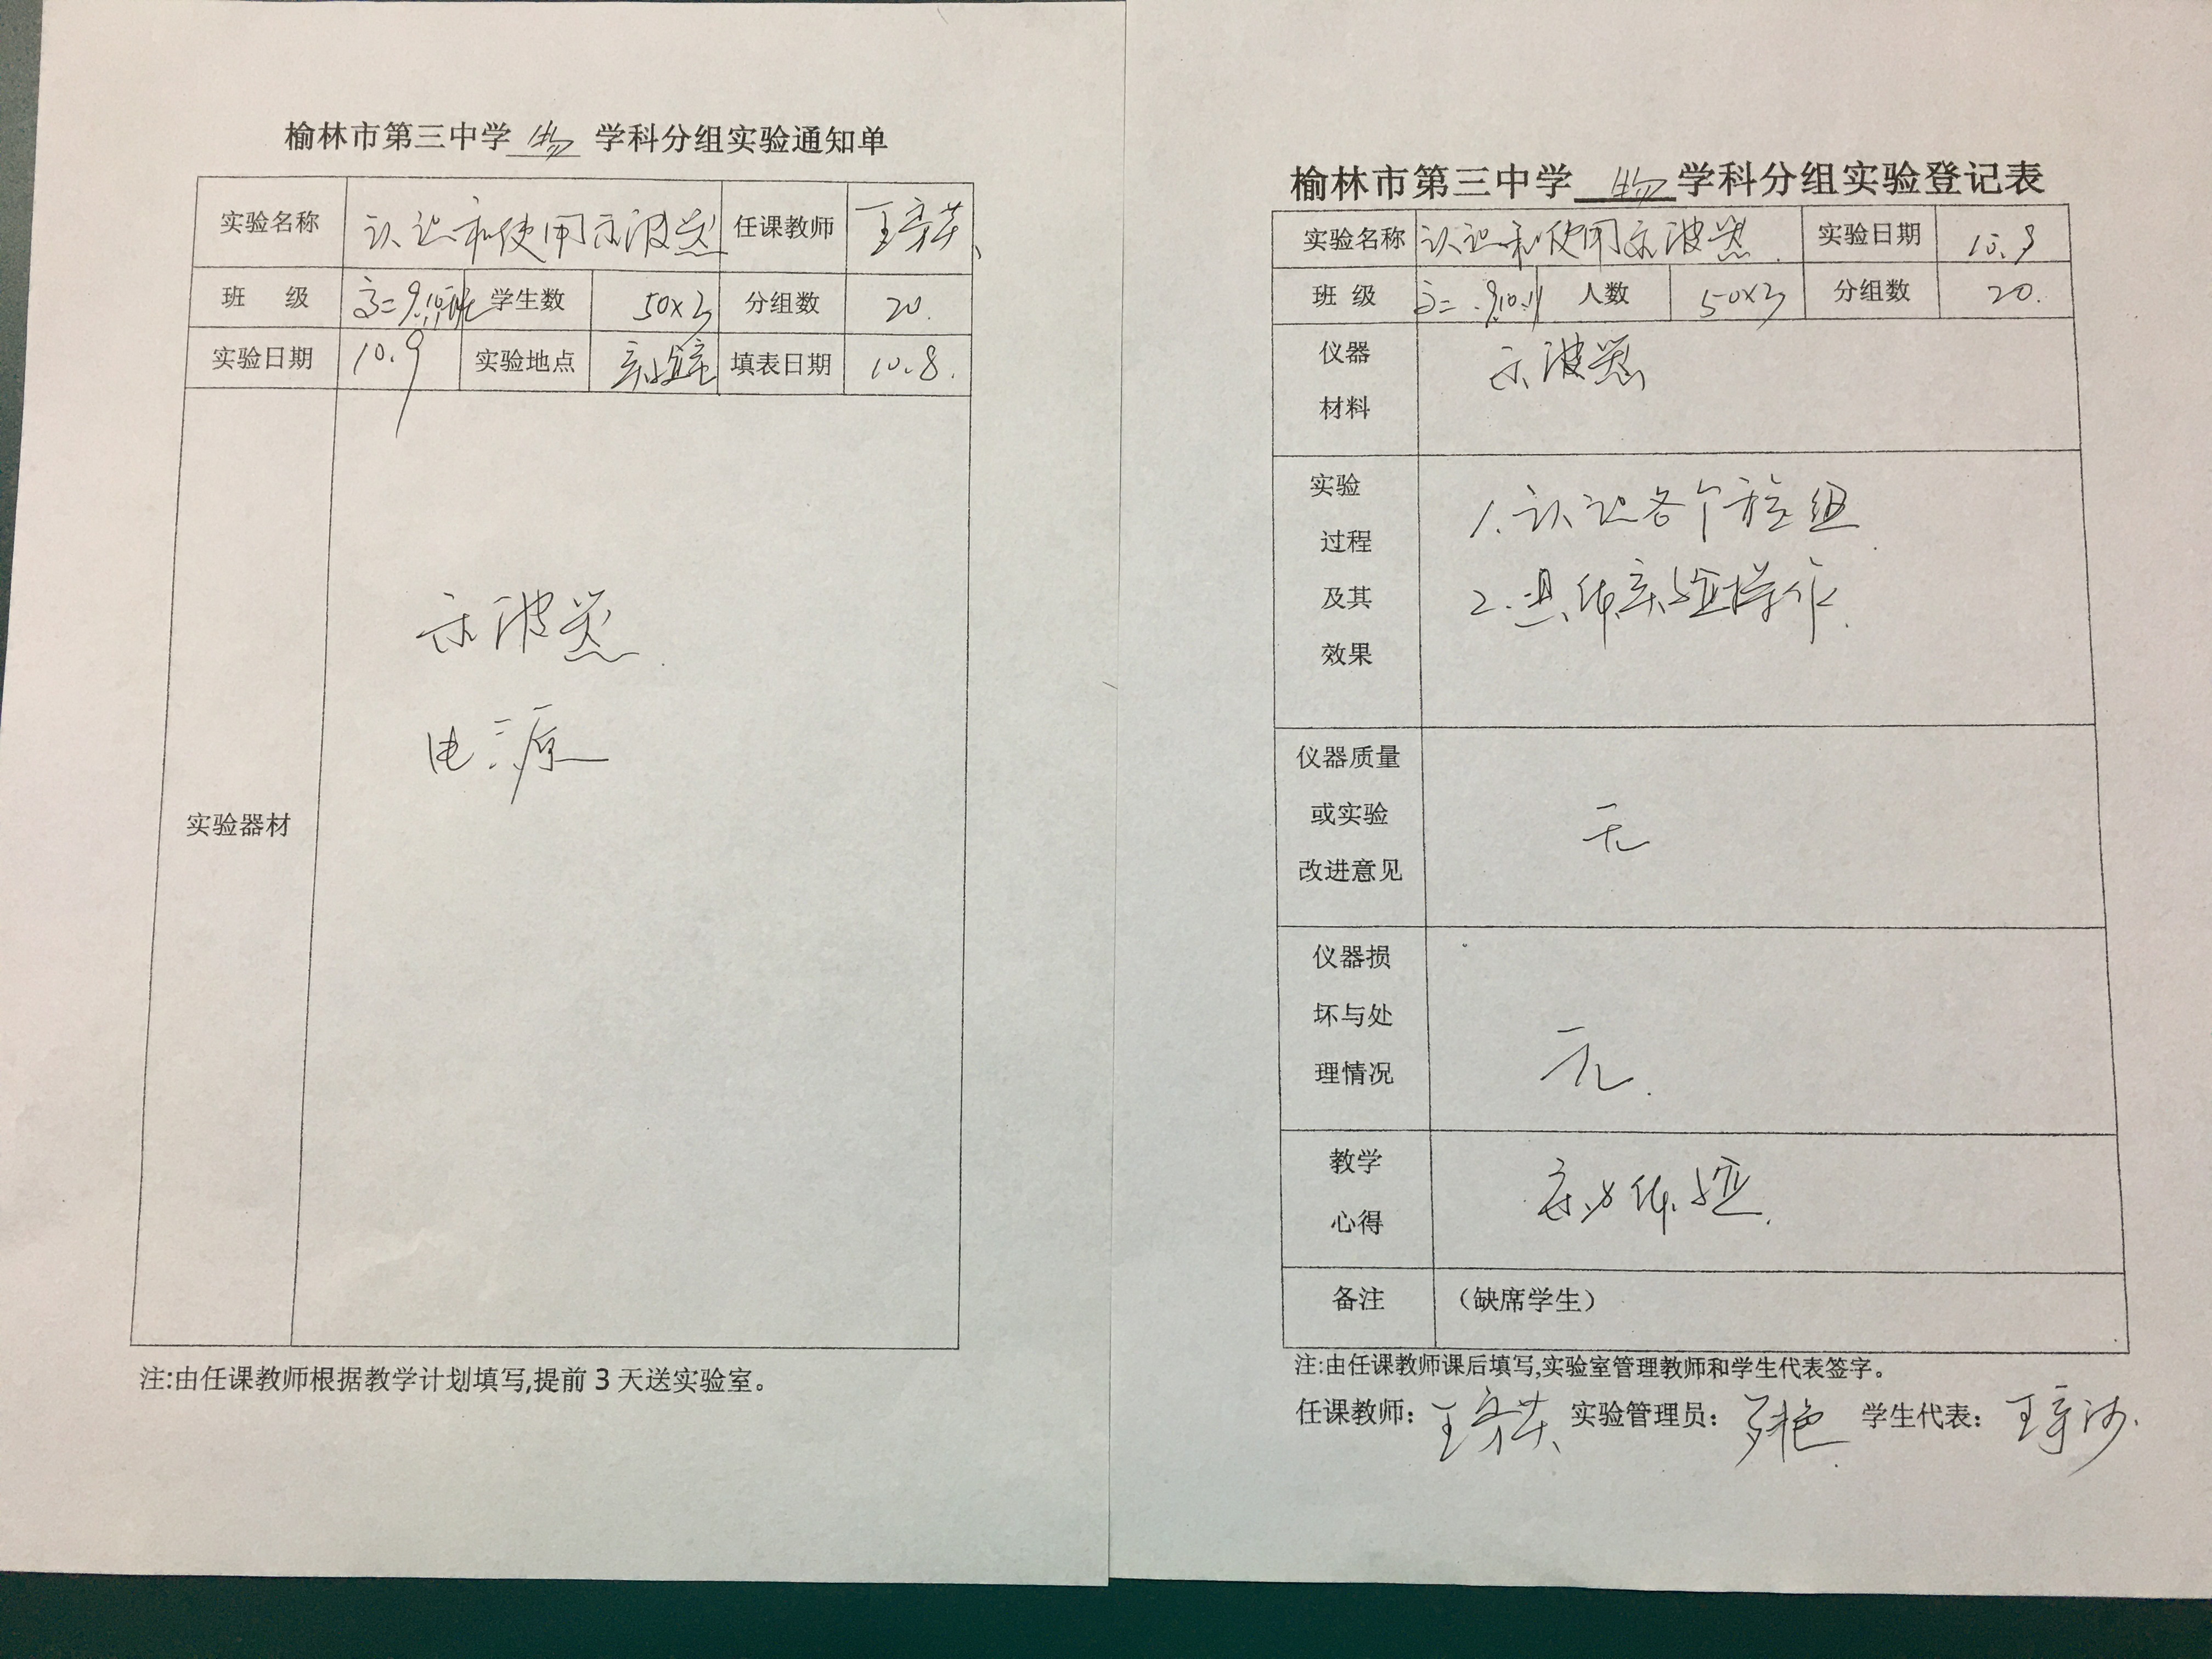 榆林市第三中学 物 学科分组实验通知单
实验名称 认识和使用示波器 任课教师
班 级 高二9.10.11班 学生数 50×3 分组数 20.
实验日期 10.9 实验地点 实验室 填表日期 10.8.
实验器材
示波器.
电源
注:由任课教师根据教学计划填写,提前 3 天送实验室。
榆林市第三中学 物 学科分组实验登记表
实验名称 认识和使用示波器. 实验日期 10.9
班 级 高二.9.10.11 人数 50×3 分组数 20.
仪器
材料
示波器
实验
过程
及其
效果
1.认识各个旋钮.
2.具体实验操作.
仪器质量
或实验
改进意见
无
仪器损
坏与处
理情况
无.
教学
心得
体验.
备注 （缺席学生）
注:由任课教师课后填写,实验室管理教师和学生代表签字。
任课教师: 实验管理员: 学生代表: